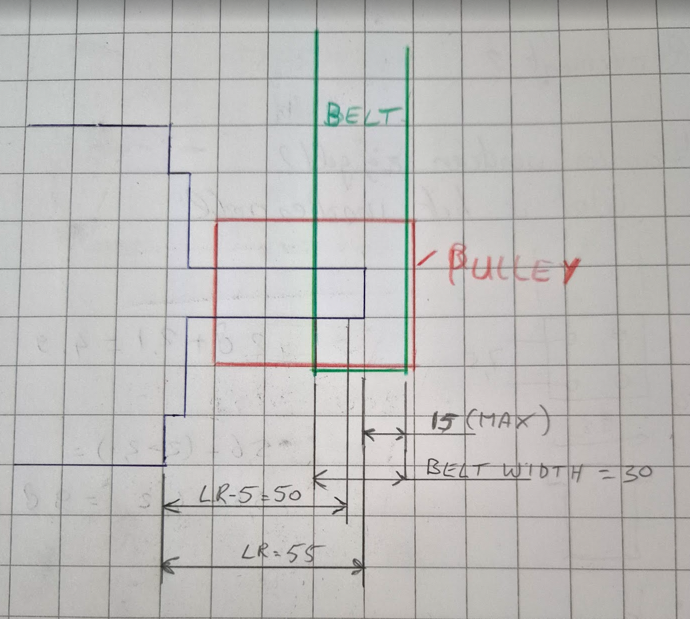 BELT
PULLEY
15 (MAX)
BELT WIDTH = 30
LR-5=50
LR=55